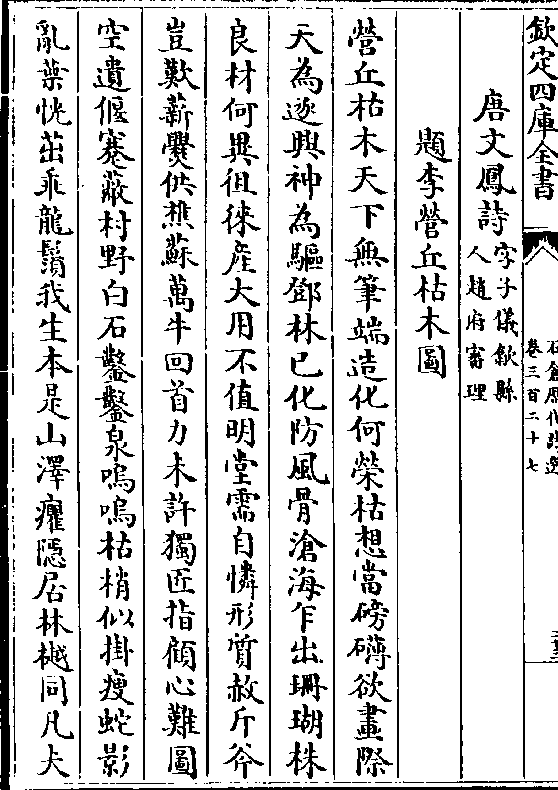 欽定四庫全書
石倉歷代詩選
卷三百二十七
唐文鳳詩字子儀歙縣
人趙府審理
題李營丘枯木圖
營丘枯木天下無筆端造化何榮枯想當磅礴欲畫際
天為遊興神為驅鄧林已化防風骨滄海乍出珊瑚株
良材何異徂徠産大用不值明堂需自憐形質赦斤斧
豈歎薪爨供樵蘇萬牛回首力未許獨匠指顧心難圖
空遺偃蹇蔽村野白石鑿鑿泉嗚嗚枯梢似掛瘦蛇影
亂葉恍茁乖龍鬚我生本是山澤癯隱居林樾同凡夫